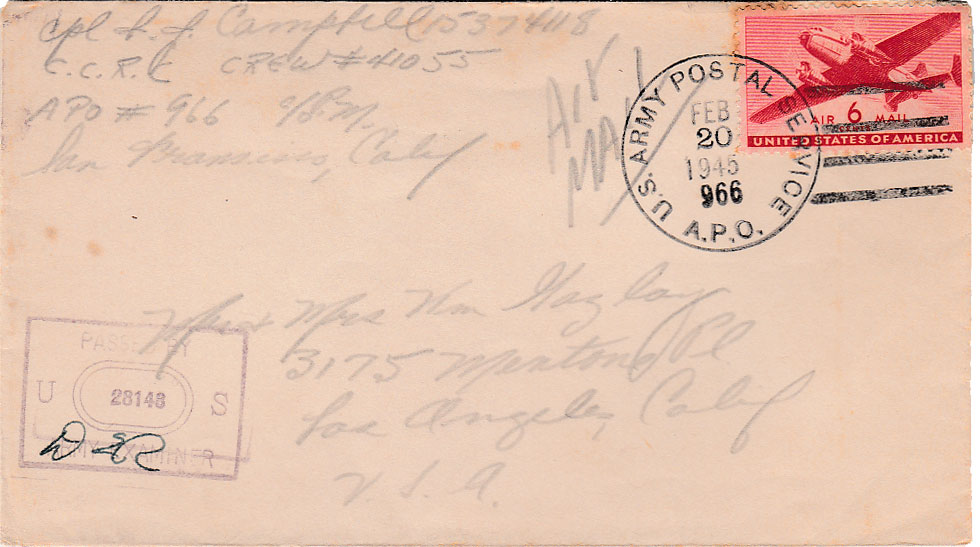 Cpl L. J. Campbell 15374118
C.C.R.C CREW #41055
APO #966 c/o P.M.
San Francisco, Calif
Air
Mail
U.S. ARMY POSTAL SERVICE
FEB
20
1945
966
A.P.O.
AIR 6¢ MAIL
UNITED STATES OF AMERICA
Mr & Mrs Wm Gaylay
3175 Mentone Pl
Los Angeles, Calif
U.S.A.
PASSED BY
U 28148 S
ARMY EXAMINER